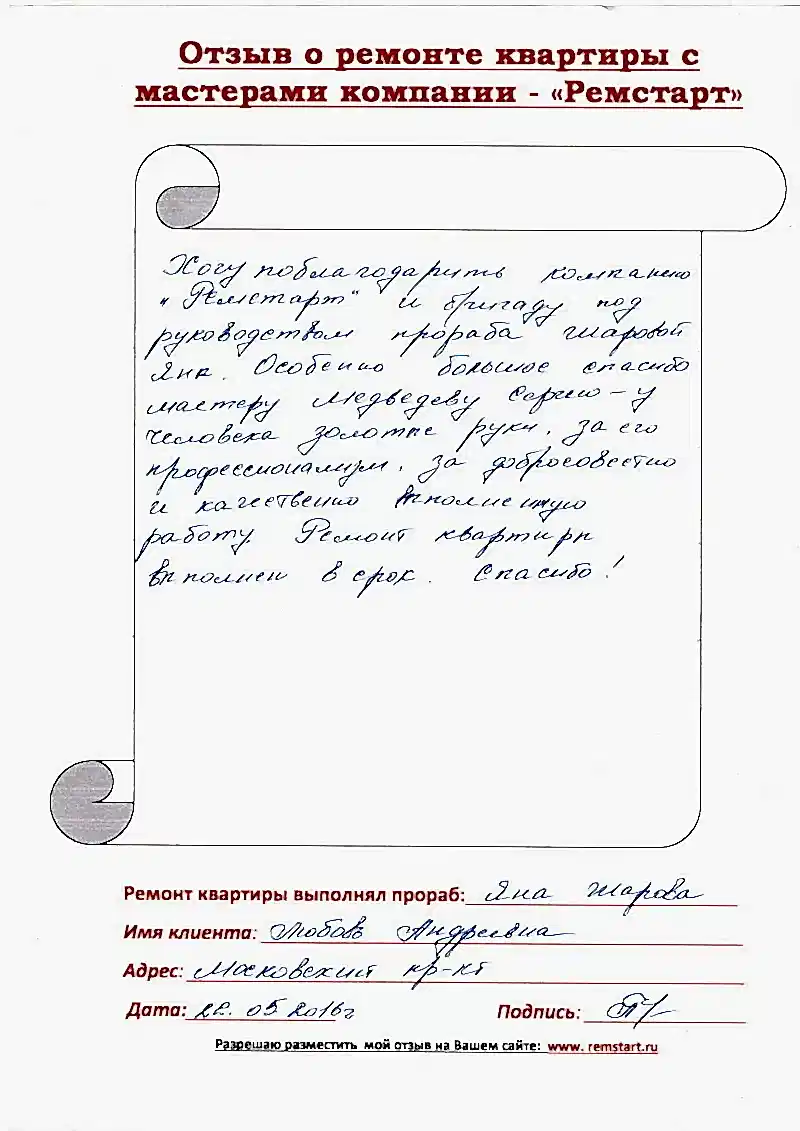 Отзыв о ремонте квартиры с
мастерами компании - «Ремстарт»
Хочу поблагодарить компанию
"Ремстарт" и бригаду под
руководством прораба Шаровой
Яны. Особенно большое спасибо
мастеру Медведеву Сергею - у
человека золотые руки, за его
профессионализм, за добросовестно
и качественно выполненную
работу. Ремонт квартиры
выполнен в срок. Спасибо!
Ремонт квартиры выполнял прораб: Яна Шарова
Имя клиента: Любовь Андреевна
Адрес: Московский пр-кт
Дата: 22. 05 2016г Подпись:
Разрешаю разместить мой отзыв на Вашем сайте: www. remstart.ru